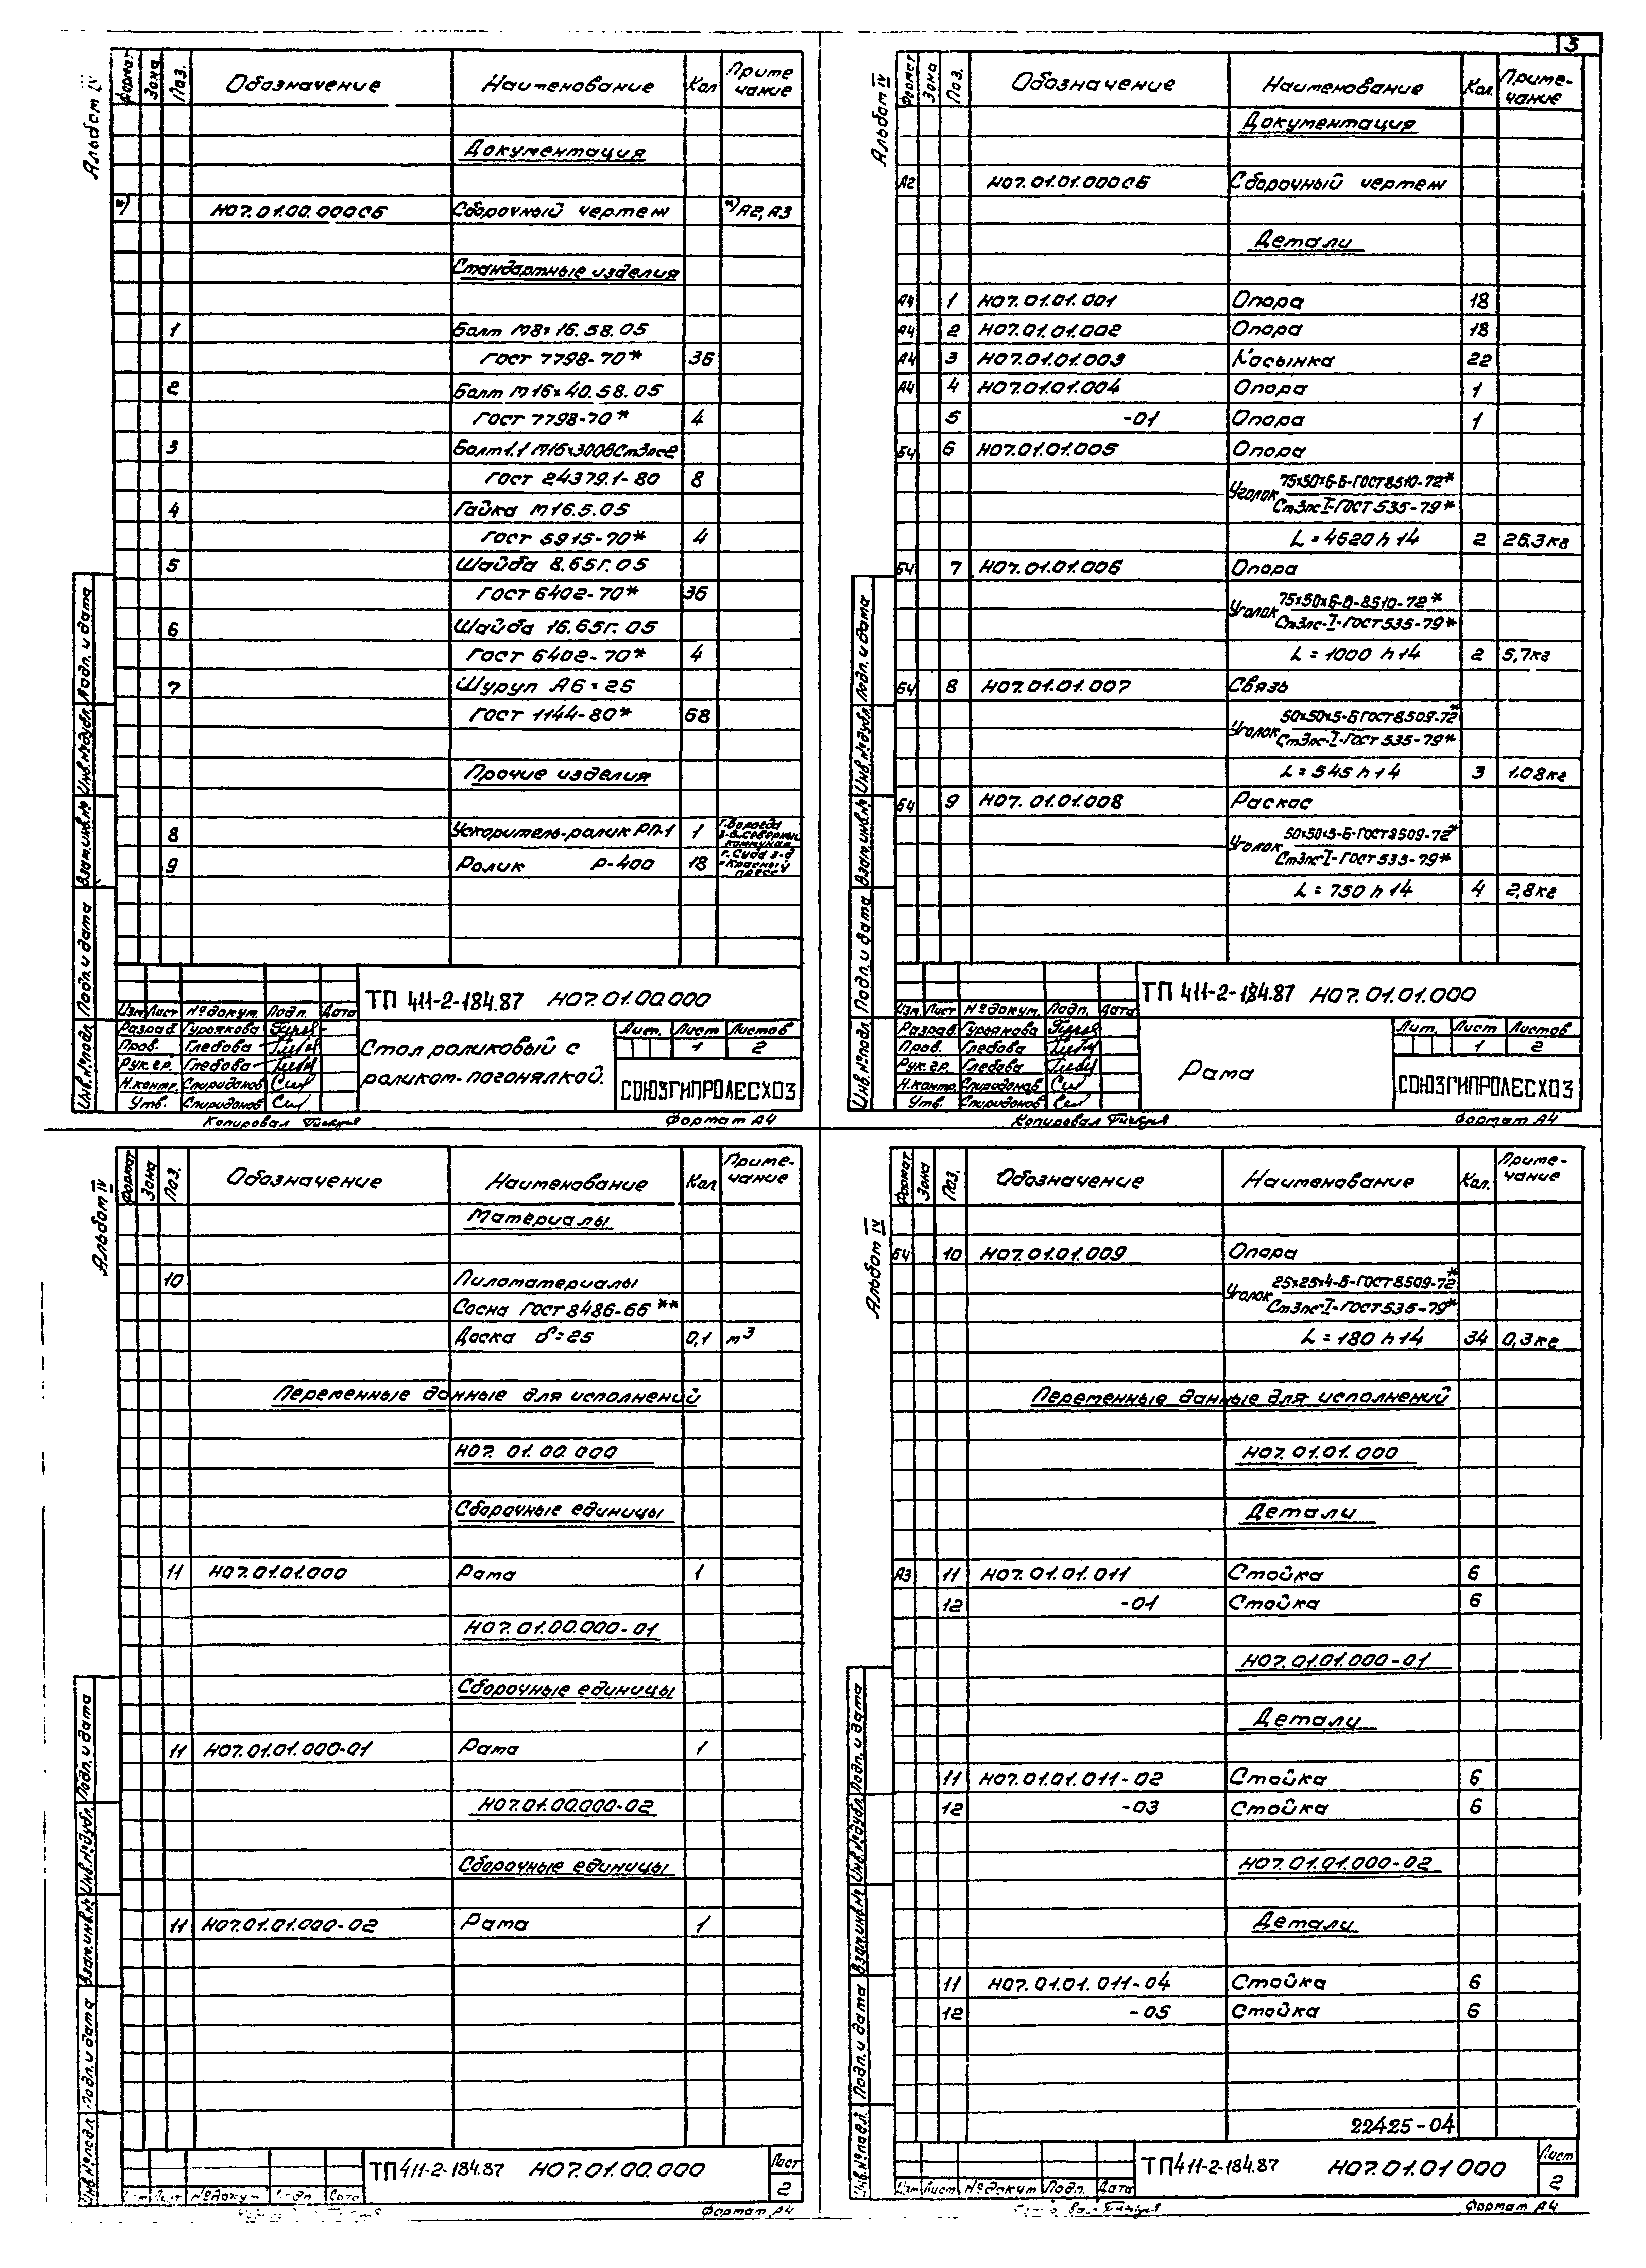 3
Альбом IV
Формат Зона Поз. Обозначение Наименование Кол Приме
чание
Документация
*) Н07.01.00.000СБ Сборочный чертеж *) А2, А3
Стандартные изделия
1 Болт М8×16.58.05
ГОСТ 7798-70* 36
2 Болт М16×40.58.05
ГОСТ 7798-70* 4
3 Болт 1.1 М16×300ВСт3пс2
ГОСТ 24379.1-80 8
4 Гайка М16.5.05
ГОСТ 5915-70* 4
5 Шайба 8.65Г.05
ГОСТ 6402-70* 36
6 Шайба 16.65Г.05
ГОСТ 6402-70* 4
7 Шуруп А6×25
ГОСТ 1144-80* 68
Прочие изделия
8 Ускоритель-ролик РП-1 1 г. Вологда
з-д „Северный
коммунар
9 Ролик Р-400 18 г. Суда з-д
„Красный
пресс"
ТП 411-2-184.87 Н07.01.00.000
Изм Лист № докум. Подп. Дата
Разраб. Гурьякова
Пров. Глебова
Рук.гр. Глебова
Н.контр. Спиридонов
Утв. Спиридонов
Стол роликовый с
роликом-погонялкой.
Лит. Лист Листов
1 2
СОЮЗГИПРОЛЕСХОЗ
Инв.№ подл. Подп. и дата Взам.инв.№ Инв.№ дубл. Подп. и дата
Копировал Формат А4
Альбом IV
Формат Зона Поз. Обозначение Наименование Кол. Приме-
чание
Документация
А2 Н07.01.01.000СБ Сборочный чертеж
Детали
А4 1 Н07.01.01.001 Опора 18
А4 2 Н07.01.01.002 Опора 18
А4 3 Н07.01.01.003 Косынка 22
А4 4 Н07.01.01.004 Опора 1
5 -01 Опора 1
БЧ 6 Н07.01.01.005 Опора
Уголок 75×50×6-Б-ГОСТ 8510-72*
Ст3пс-I-ГОСТ 535-79*
L = 4620 h14 2 26.3кг
БЧ 7 Н07.01.01.006 Опора
Уголок 75×50×6-Б-8510-72*
Ст3пс-I-ГОСТ 535-79*
L = 1000 h14 2 5,7кг
БЧ 8 Н07.01.01.007 Связь
Уголок 50×50×5-Б ГОСТ 8509-72*
Ст3пс-I-ГОСТ 535-79*
L = 545 h14 3 1.08кг
БЧ 9 Н07.01.01.008 Раскос
Уголок 50×50×5-Б-ГОСТ 8509-72*
Ст3пс-I-ГОСТ 535-79*
L = 750 h14 4 2,8кг
ТП 411-2-184.87 Н07.01.01.000
Изм. Лист № докум. Подп. Дата
Разраб. Гурьякова
Пров. Глебова
Рук.гр. Глебова
Н.контр. Спиридонов
Утв. Спиридонов
Рама
Лит. Лист Листов
1 2
СОЮЗГИПРОЛЕСХОЗ
Инв.№ подл. Подп. и дата Взам.инв.№ Инв.№ дубл. Подп. и дата
Копировал Формат А4
Альбом IV
Формат Зона Поз. Обозначение Наименование Кол Приме-
чание
Материалы
10 Пиломатериалы
Сосна ГОСТ 8486-66**
Доска δ=25 0,1 м³
Переменные данные для исполнений
Н07.01.00.000
Сборочные единицы
11 Н07.01.01.000 Рама 1
Н07.01.00.000-01
Сборочные единицы
11 Н07.01.01.000-01 Рама 1
Н07.01.00.000-02
Сборочные единицы
11 Н07.01.01.000-02 Рама 1
ТП 411-2-184.87 Н07.01.00.000
Лист
2
Изм Лист № докум Подп. Дата
Инв.№ подл. Подп. и дата Взам.инв.№ Инв.№ дубл. Подп. и дата
Формат А4
Альбом IV
Формат Зона Поз. Обозначение Наименование Кол. Приме-
чание
БЧ 10 Н07.01.01.009 Опора
Уголок 25×25×4-Б-ГОСТ 8509-72*
Ст3пс-I-ГОСТ 535-79*
L = 180 h14 34 0,3кг
Переменные данные для исполнений
Н07.01.01.000
Детали
А3 11 Н07.01.01.011 Стойка 6
12 -01 Стойка 6
Н07.01.01.000-01
Детали
11 Н07.01.01.011-02 Стойка 6
12 -03 Стойка 6
Н07.01.01.000-02
Детали
11 Н07.01.01.011-04 Стойка 6
12 -05 Стойка 6
22425-04
ТП 411-2-184.87 Н07.01.01 000
Лист
2
Изм Лист № докум Подп. Дата
Инв.№ подл. Подп. и дата Взам.инв.№ Инв.№ дубл. Подп. и дата
Формат А4